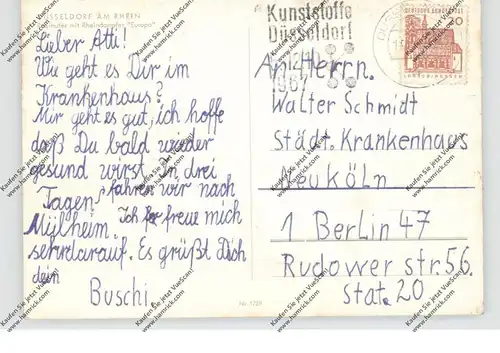 DÜSSELDORF AM RHEIN
mit Rheindampfer "Europa"
Lieber Atti!
Wie geht es Dir im
Krankenhaus?
Mir geht es gut, ich hoffe
daß Du bald wieder
gesund wirst. In drei
Tagen fahren wir nach
Mülheim. Ich freue mich
sehr darauf. Es grüßt Dich
dein
Buschi
Nr. 1729
Kunststoffe
Düsseldorf
1967
DEUTSCHE BUNDESPOST
20
An Herrn.
Walter Schmidt
Städt. Krankenhaus
Neuköln
1 Berlin 47
Rudower str. 56.
Stat. 20
Kaufen Sie jetzt VueScan!
www.hamrick.com